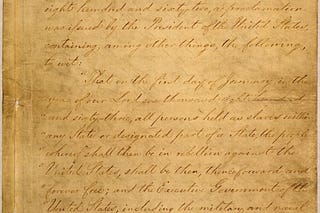 eight hundred and sixty two, a proclamation
was issued by the President of the United States,
containing, among other things, the following,
to wit:
"That on the first day of January, in the
"year of our Lord one thousand eight hundred
"and sixty-three, all persons held as slaves within
"any State or designated part of a State, the people
"whereof shall then be in rebellion against the
"United States, shall be then, thenceforward, and
"forever free; and the Executive Government of the
"United States, including the military and naval